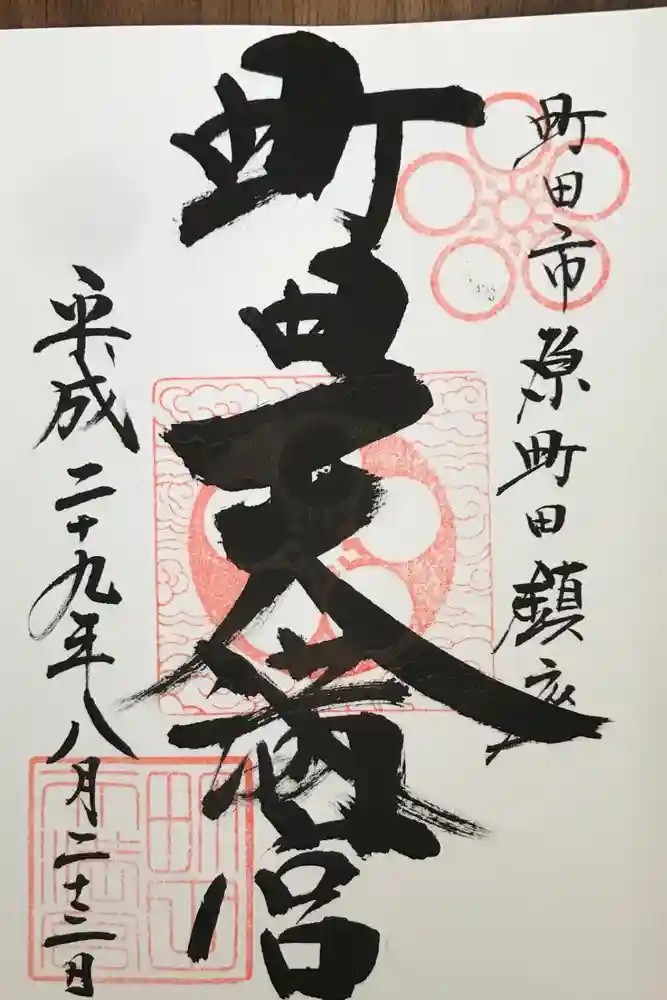 町田市原町田鎮座
町田天満宮
平成二十九年八月二十二日